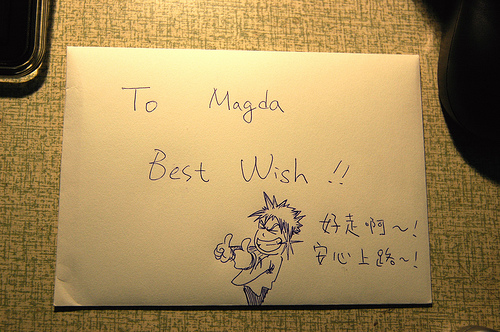 To Magda
Best Wish !!
好走啊～!
安心上路～!